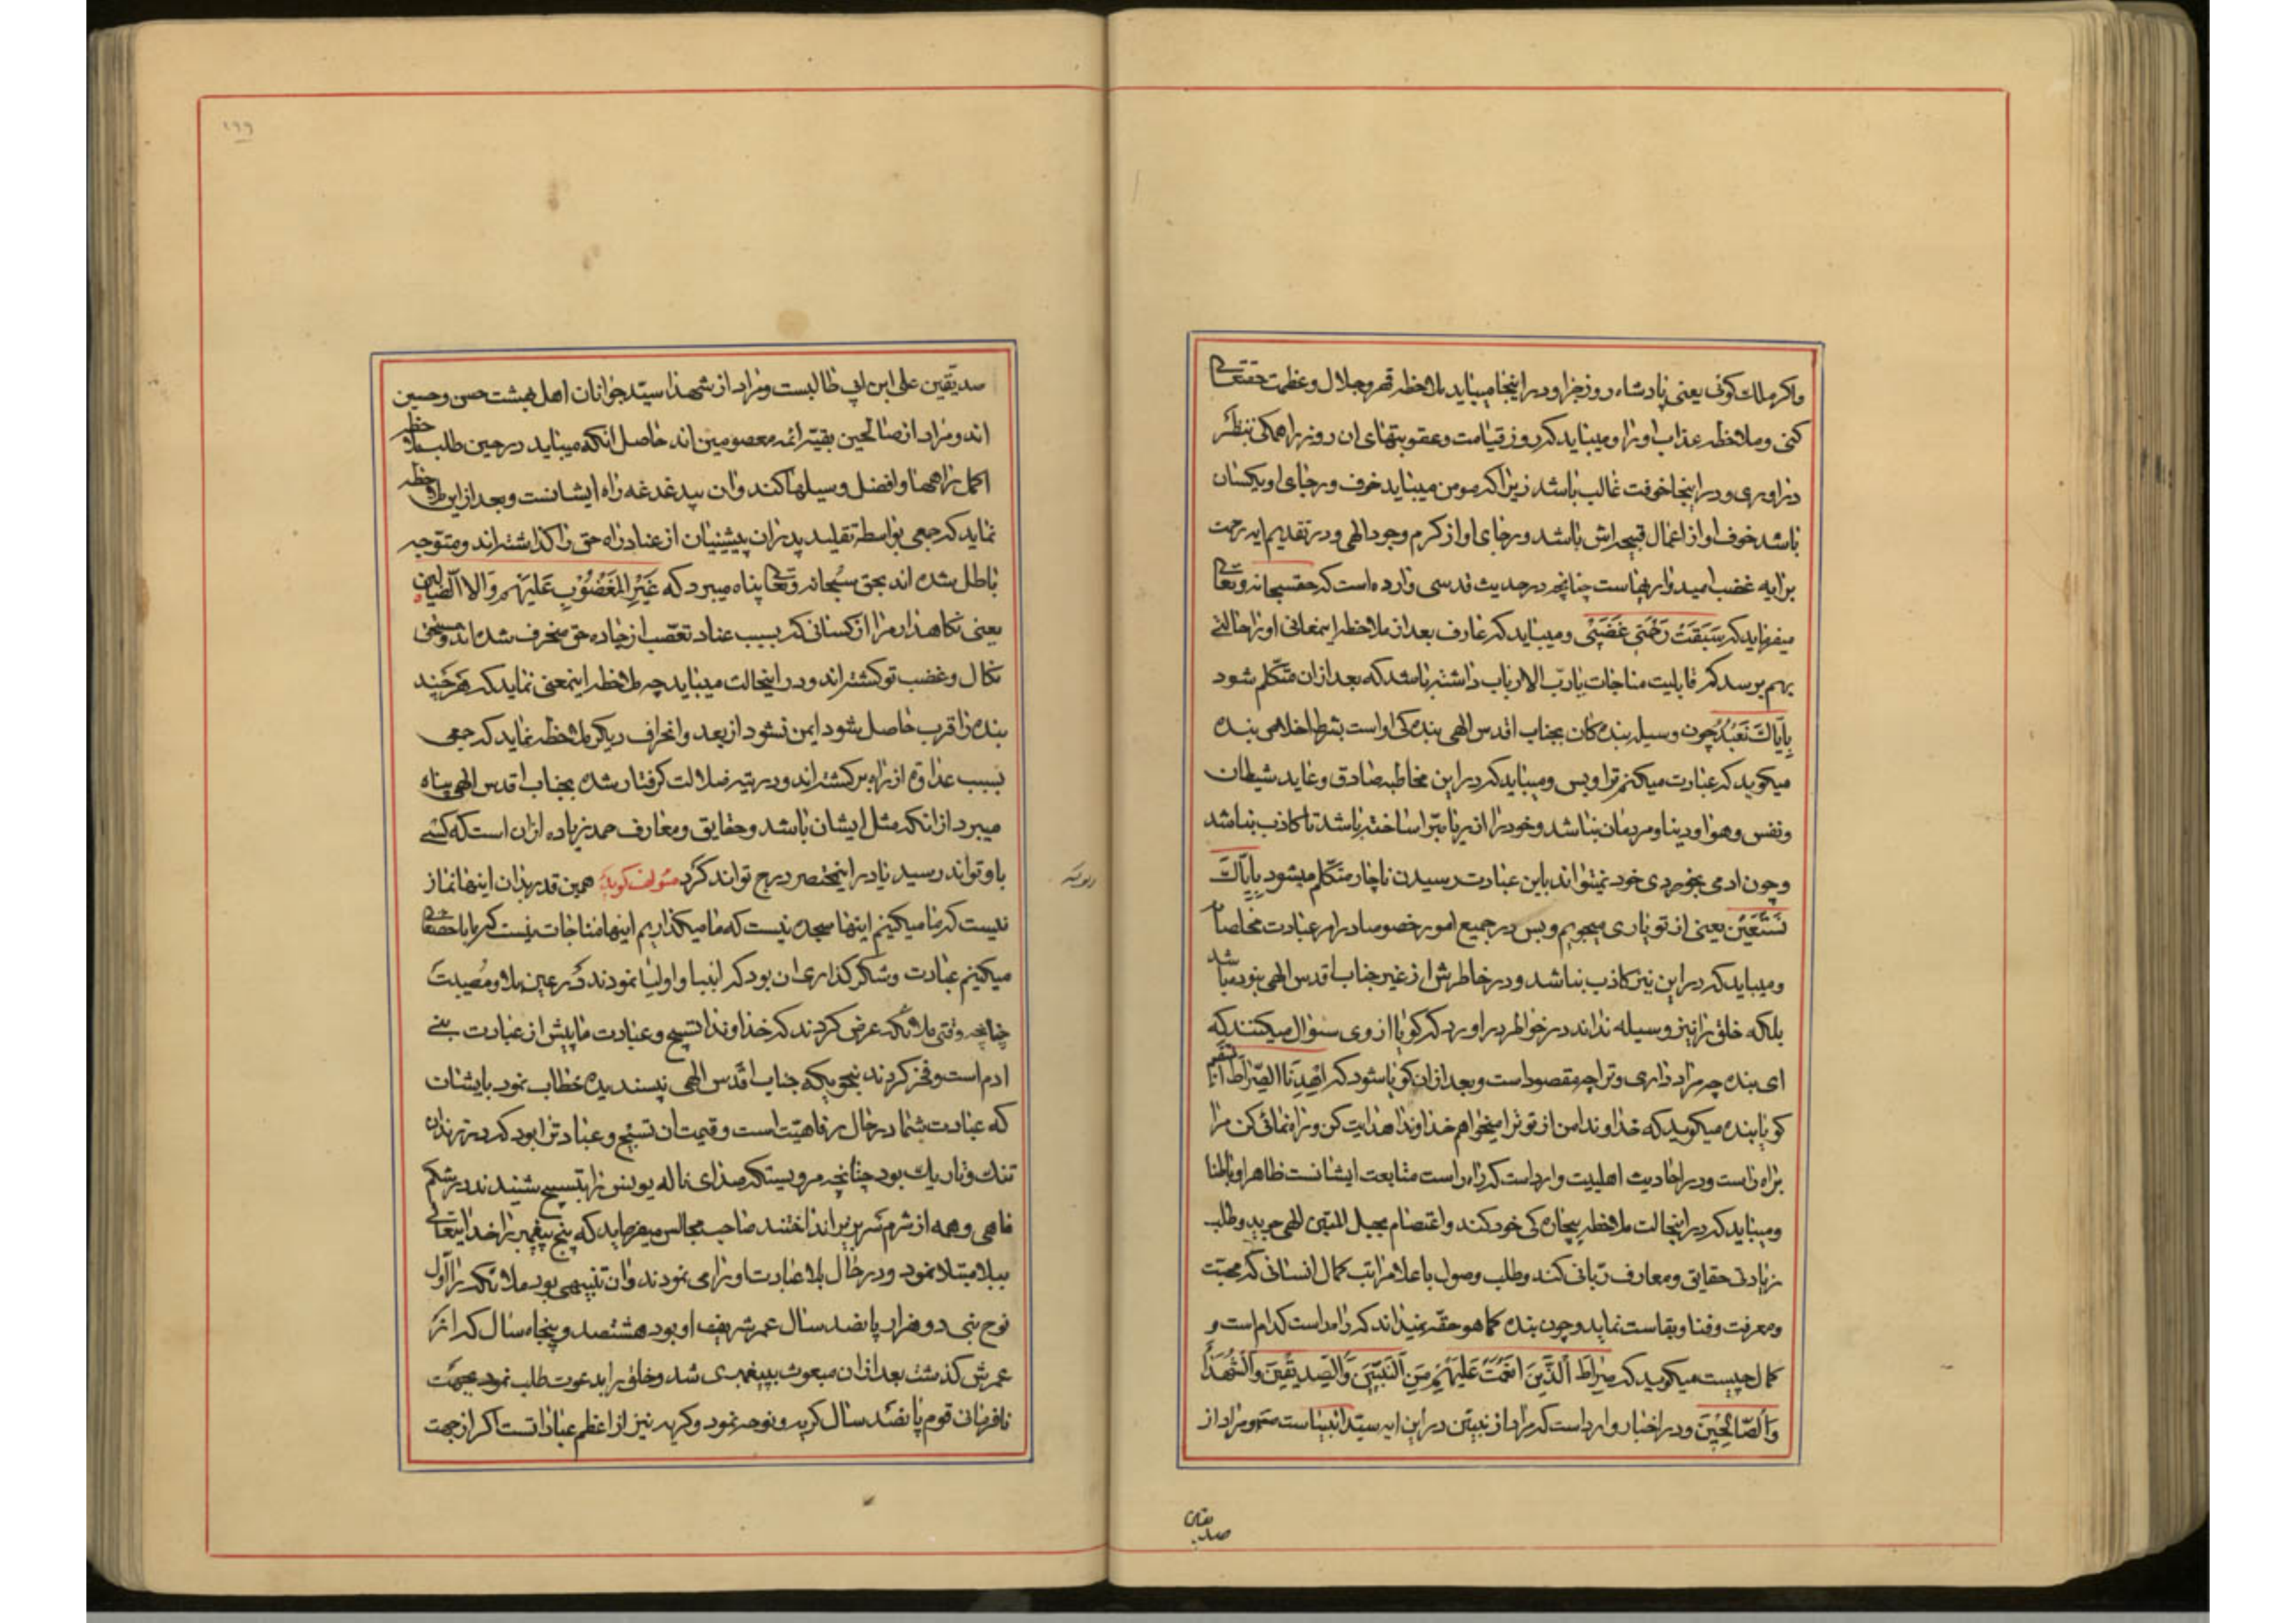 واکر ملک کوئی یعنی پادشاه روز جزا و در اینجا میباید ملاحظه قهر و جلال و عظمت حقتعالی
کنی و ملاحظه عذاب او را و میباید که روز قیامت و عقوبتهای ان روز را همکی بنظر
دراوری و در اینجا خوفت غالب باشد زیرا که مومن میباید خوف و رجای او یکسان
باشد خوف او از اعمال قبیحه اش باشد و رجای او از کرم وجود الهی و در تقدیم ایه رحمت
برایه غضب امیدواریهاست چنانچه در حدیث قدسی وارد است که حقسبحانه وتعالی
میفرماید که سَبَقَتْ رَحْمَتی غَضَبی و میباید که عارف بعد از ملاحظه اسمعانی او را حالتی
بهم برسد که قابلیت مناجات با رب الارباب داشته باشد که بعد ازان متکلم شود
بِاِیّاکَ نَعْبُدُ چون وسیله بنده کان بجناب اقدس الهی بنده کی او است بشرط اخلاص بنده
میکوید که عبادت میکنم ترا و بس و میباید که در این مخاطبه صادق و عابد شیطان
ونفس و هوا و دنیا و مردمان نباشد و خود را از ریا مبرا ساخته باشد تا کاذب نباشد
وچون ادمی بخودی خود نمیتواند باین عبادت رسیدن ناچار متکلم میشود بِاِیّاکَ
نَسْتَعین یعنی از تو یاری میجویم و بس در جمیع امور خصوصا در امر عبادت
ومیباید که در این نیز کاذب نباشد و در خاطرش از غیر جناب اقدس الهی نبوده باشد
بلکه خلق را نیز وسیله نداند در خواطر دراورد که کویا از وی سئوال میکنند که
ای بنده چه مراد داری و ترا چه مقصود است و بعد ازان کویا شود که اِهْدِنَا الصِّراطَ المستقیم
کویا بنده میکوید که خداوندا من از تو ترا میخواهم خداوندا هدایت کن و راه نمائی کن مرا
براه راست و در احادیث اهلبیت وارد است که راه راست متابعت ایشانست ظاهرا و باطنا
ومیباید که در اینحالت ملاحظه بیچاره کی خود کند و اعتصام بحبل المتین الهی جوید وطلب
زیادتی حقایق و معارف ربانی کند و طلب وصول باعلا مراتب کمال انسانی که محبت
ومعرفت و فنا و بقاست نماید و چون بنده کما هو حقه نمیداند که راه راست کدام است و
کمال چیست میکوید که صِراطَ الَّذینَ اَنْعَمْتَ عَلَیْهِمْ مِنَ النَّبِیّینَ وَالصِّدیقینَ وَالشُّهَداءِ
وَالصّالِحینَ و در اخبار وارد است که مراد از نبیین در این ایه سید انبیاست و مراد از
صدیقین
۱۹۹
صدیقین علی ابن ابی طالبست و مراد از شهدا سید جوانان اهل بهشت حسن و حسین
اند و مراد از صالحین بقیه ائمه معصومین اند حاصل انکه میباید در حین طلب ملاحظه
اکمل راهها و افضل وسیلها کند وان بیدغدغه راه ایشانست و بعد از این ملاحظه
نماید که جمعی بواسطه تقلید پدران پیشینیان از عناد راه حق را کذاشته اند و متوجه
باطل شده اند بحق سبحانه وتعالی پناه میبرد که غَیْرِ الْمَغْضُوْبِ عَلَیْهِمْ وَلَا الضّالّین
یعنی نکاهدار مرا از کسانی که بسبب عناد تعصب از جاده حق منحرف شده اند و مستحق
نکال و غضب تو کشته اند و در اینحالت میباید چه ملاحظه اینمعنی نماید که هرچند
بنده را قرب حاصل شود ایمن نشود از بعد و انحراف دیکر ملاحظه نماید که جمعی
بسبب عداوة از راه برکشته اند و در تیه ضلالت کرفتار شده بجناب اقدس الهی پناه
میبرد از انکه مثل ایشان باشد و حقایق و معارف حمد زیاده ازان است که کسی
باو تواند رسید یا در اینمختصر درج تواند کرد مئولف کوید همین قدر بدان اینها نماز
نیست که ما میکنیم اینها سجده نیست که ما میکذاریم اینها مناجات نیست که ما با حقتعالی
میکنیم عبادت و شکر کذاری ان بود که انبیا و اولیا نمودند که در عین بلا و مصیبت
چنانچه وقتی ملائکه عرض کردند که خداوندا تسبیح و عبادت ما پیش از عبادت بنی
ادم است و فخر کردند بنحویکه جناب اقدس الهی نپسندیده خطاب نمود بایشان
که عبادت شما در حال رفاهیت است و قیمت ان تسبیح و عبادت را بود که در زندان
تنک و تاریک بود چنانچه مرویستکه صدای ناله یونس را بتسبیح شنیدند در شکم
ماهی و همه از شرم سر بزیر انداختند صاحب مجالس میفرماید که پنج پیغمبر را خدایتعالی
ببلا مبتلا نمود و در حال بلا عبادت او را می نمودند وان تنبیهی بود ملائکه را اول
نوح نبی دو هزار پانصد سال عمر شریف او بود هشتصد و پنجاه سال که از
عمرش کذشت بعد ازان مبعوث بپیغمبری شد و خلق را بدعوت طلب نمود بجهت
نافرمانی قوم پانصد سال کریه و نوحه نمود و کریه نیز از اعظم عباداتست اکر از جهت